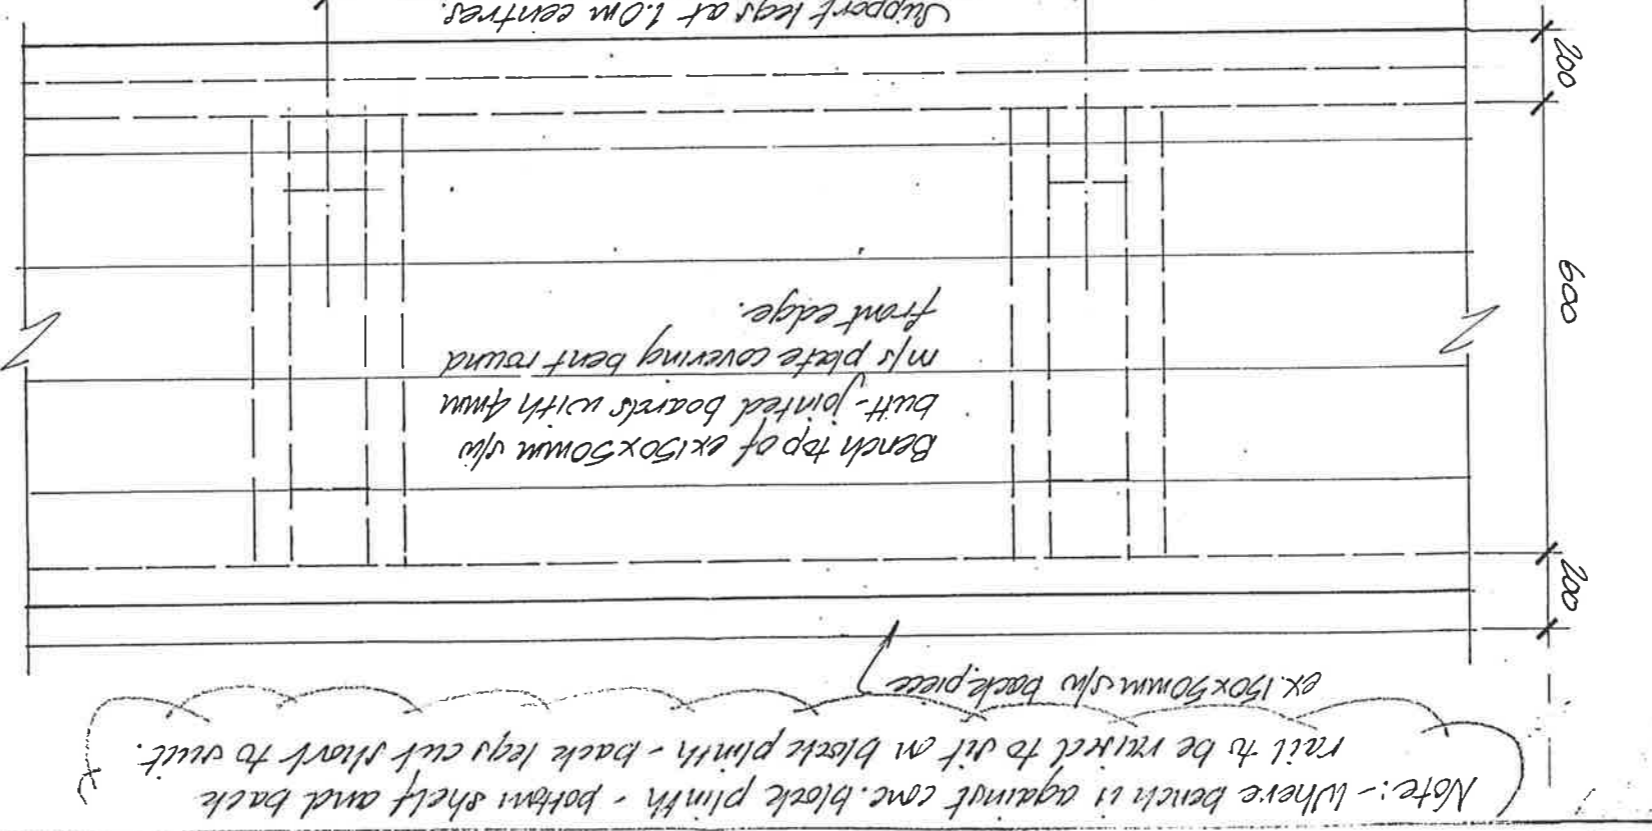 Note:- Where bench is against conc. block plinth - bottom shelf and back
rail to be raised to sit on block plinth - back legs cut short to suit.
ex.150x50mm s/w back piece
200
Bench top of ex.150x50mm s/w
butt-jointed boards with 4mm
m/s plate covering bent round
front edge.
600
200
Support legs at 1.0m centres.